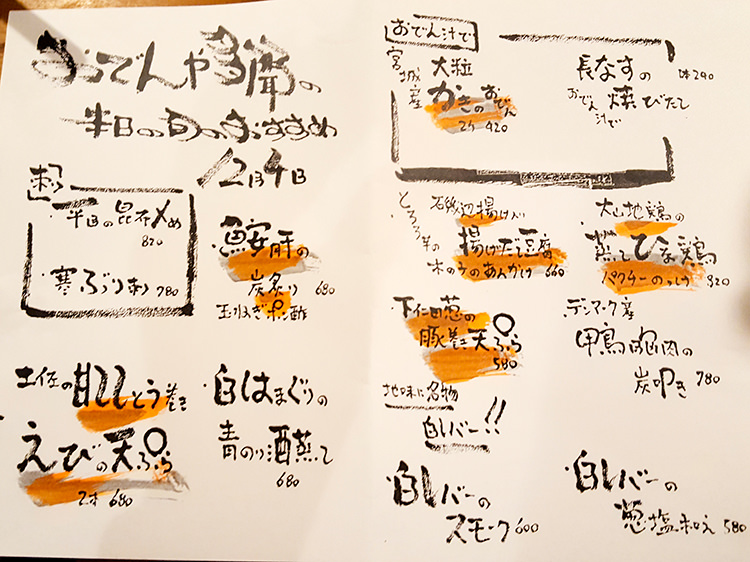 おでんや
半日の旬のおすすめ
12月4日
刺
平目の昆布〆め
820
寒ぶり刺 780
鮟肝の
炭炙り 680
玉ねぎポン酢
土佐の甘しとう巻き
えびの天ぷら
2本 680
白はまぐりの
青のり酒蒸し
680
おでん汁で
宮城産
大粒
かきのおでん
2ケ 420
長なすの
おでん汁で
焼びたし
290
とろろ芋の
揚げたて豆腐の
木の子のあんかけ 660
大山地鶏の
蒸してひな鶏
パクチーのっけ 820
下仁田葱の
豚巻き天ぷら
580
デンマーク産
鴨胸肉の
炭叩き 780
地味に名物
白レバー!!
白レバーの
スモーク 600
白レバーの
葱塩和え 580